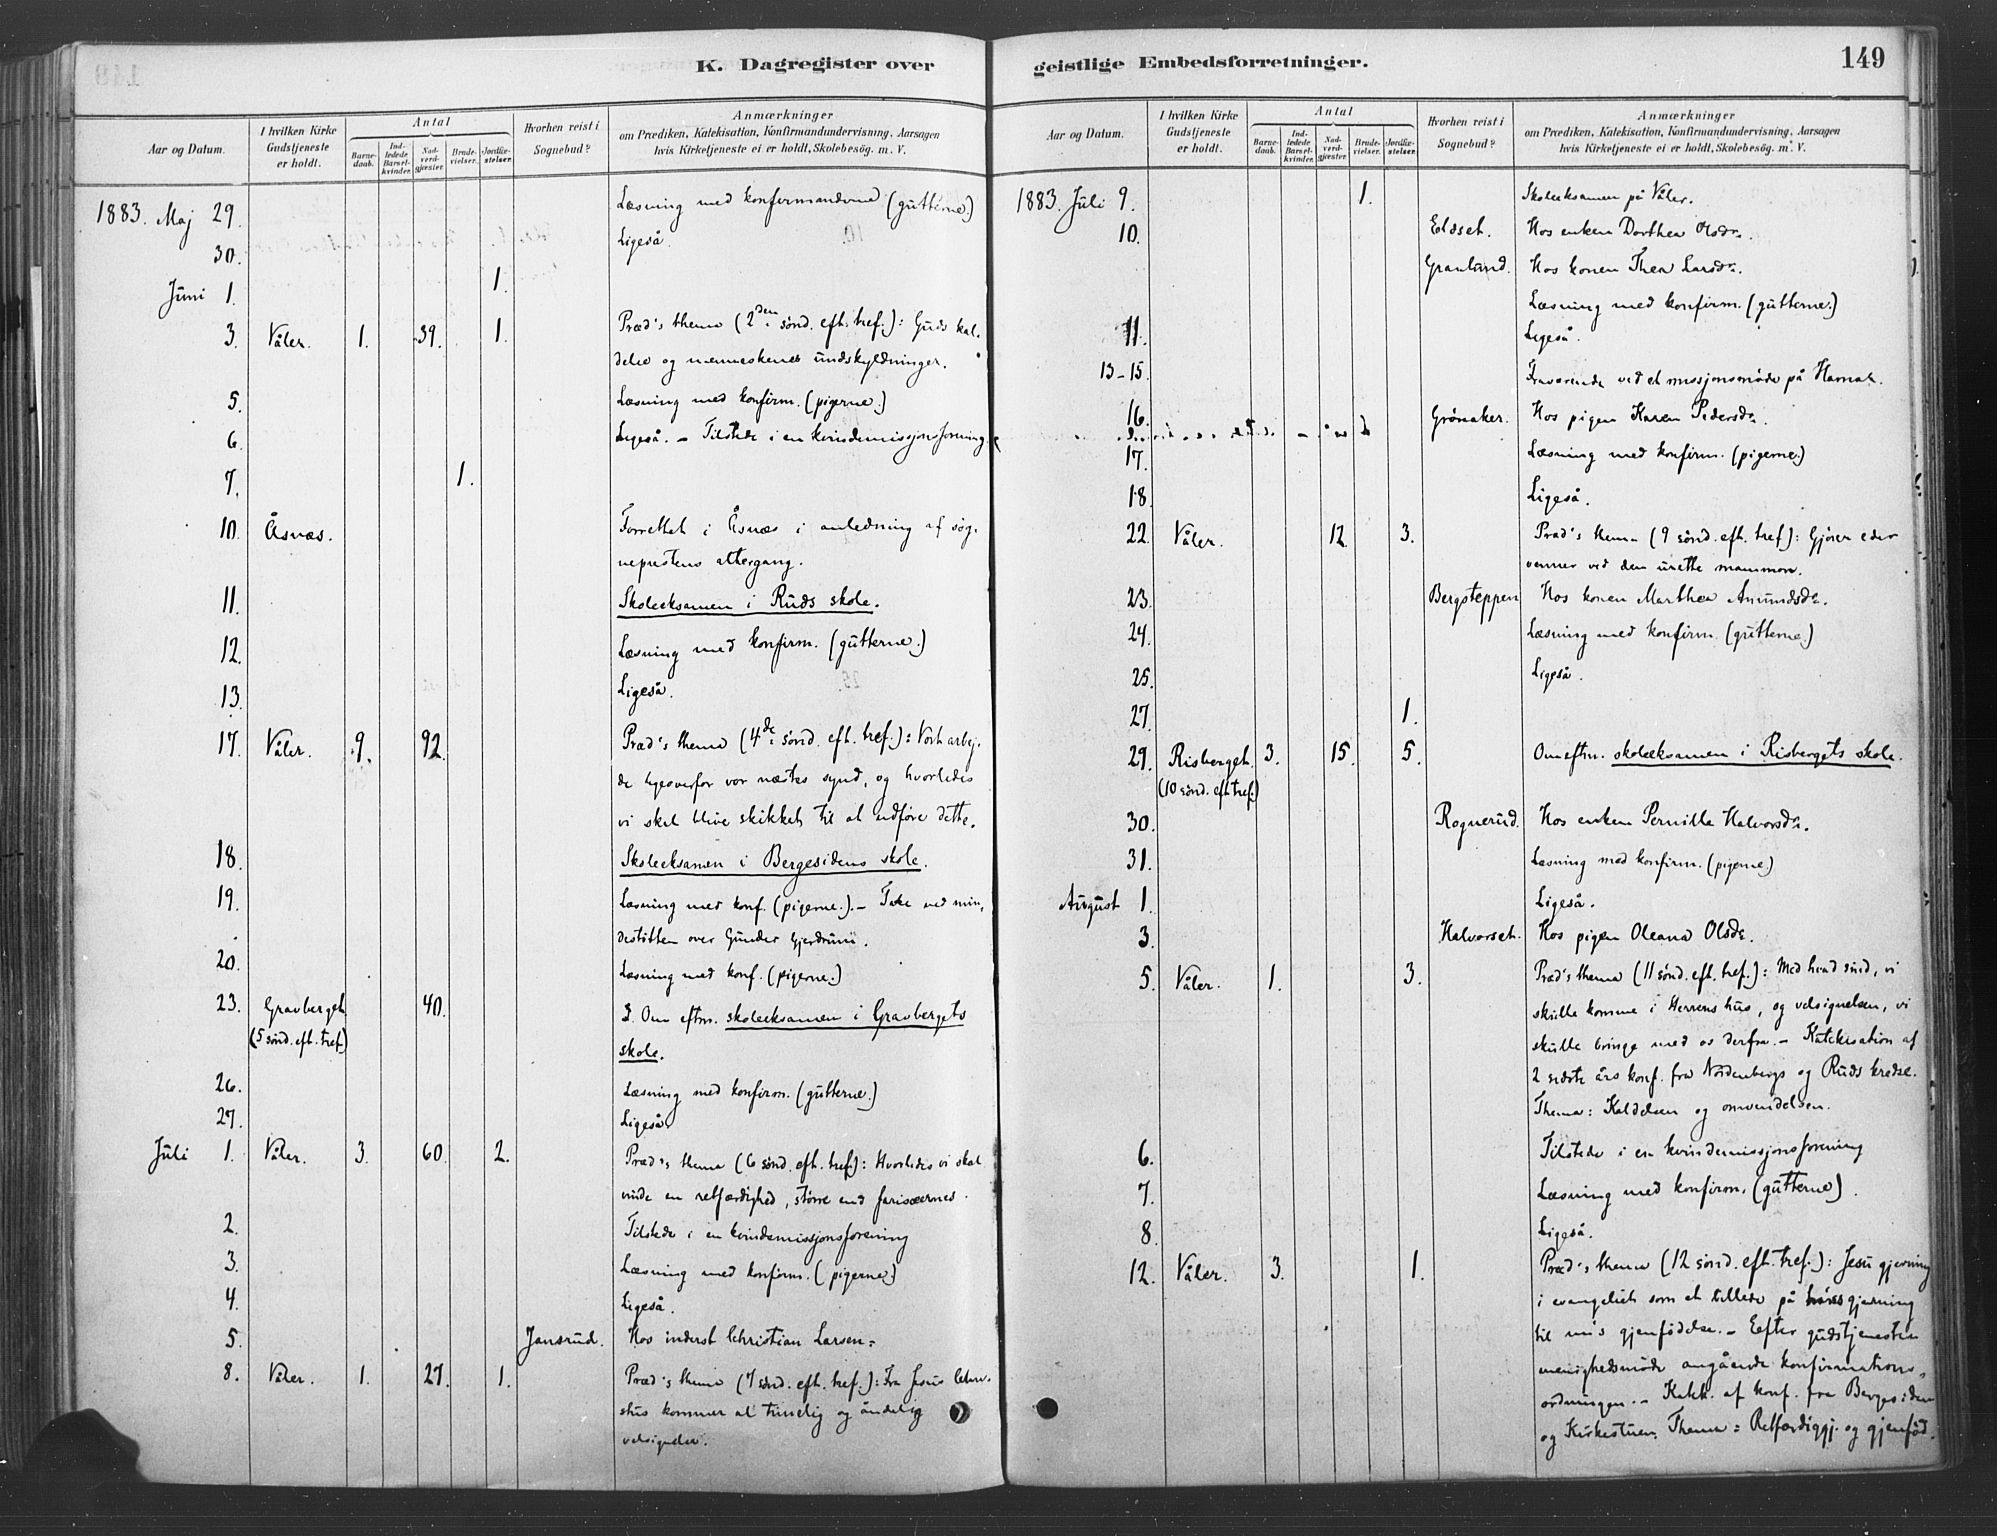 K. Dagregister over
Aar og Datum.
I hvilken Kirke Gudstjeneste er holdt.
Antal
Barne-daab.
Ind-ledede Barsel-kvinder.
Nad-verd-gjæster.
Brude-vielser.
Jordfæ-stelser.
Hvorhen reist i Sognebud?
Anmærkninger
om Prædiken, Katekisation, Konfirmandundervisning, Aarsagen
hvis Kirketjeneste ei er holdt, Skolebesög. m. V.
1883. Maj 29. Læsning med konfirmanderne (gutterne.)
30. Ligeså.
Juni 1. 1.
3. Våler. 1. 39. 1. Præd's thema (2den sönd. eft. tref.): Guds kal-
delse og menneskenes undskyldninger.
5. Læsning med konfirm. (pigerne.)
6. Ligeså. – Tilstede i en kvindemissjonsforening.
7. 1.
10. Åsnæs. Forrettet i Åsnæs i anledning af sog-
neprestens attergang.
11. Skoleeksamen i Ruds skole.
12. Læsning med konfirm. (gutterne.)
13. Ligeså.
17. Våler. 9. 92. Præd's thema (4de sönd. eft. tref.): Vort arbej-
de ligeoverfor vor næstes synd, og hvorledes
vi skal blive skikket til at udföre dette.
18. Skoleeksamen i Bergesidens skole.
19. Læsning med konf. (pigerne.). – Tale ved min-
destötten over Gunder Gjerdrum.
20. Læsning med konf. (pigerne.)
23. Gravberget. 40. Om eftm. skoleeksamen i Gravbergets
(5 sönd. eft. tref.) skole.
26. Læsning med konfirm. (gutterne.)
27. Ligeså.
Juli 1. Våler. 3. 60. 2. Præd's thema (6 sönd. eft. tref.): Hvorledes vi skal
vinde en retfærdighed, större end farisæernes.
2. Tilstede i en kvindemissjonsforening
3. Læsning med konfirm. (pigerne)
4. Ligeså.
5. Jansrud. Hos inderst Christian Larsen.
8. Våler. 1. 27. 1. Præd's thema (7 sönd. eft. tref.): Fra Jesus Chri-
stus kommer al timelig og åndelig
velsignelse.
geistlige Embedsforretninger.
149
Aar og Datum.
I hvilken Kirke Gudstjeneste er holdt.
Antal
Barne-daab.
Ind-ledede Barsel-kvinder.
Nad-verd-gjæster.
Brude-vielser.
Jordfæ-stelser.
Hvorhen reist i Sognebud?
Anmærkninger
om Prædiken, Katekisation, Konfirmandundervisning, Aarsagen
hvis Kirketjeneste ei er holdt, Skolebesög. m. V.
1883. Juli 9. 1. Skoleeksamen på Våler.
10. Eldset. Hos enken Dorthea Olsdr.
Granlund. Hos konen Thea Larsdr.
Læsning med konfirm. (gutterne.)
11. Ligeså.
13–15. Fraværende ved et missjonsmöde på Hamar.
16. Grönaker. Hos pigen Karen Pedersdr.
17. Læsning med konfirm. (pigerne.)
18. Ligeså.
22. Våler. 12. 3. Præd's thema (9 sönd. eft. tref.): Gjörer eder
venner ved den urette mammon.
23. Bergsteppen Hos konen Marthea Amundsdr.
24. Læsning med konfirm. (gutterne.)
25. Ligeså.
27. 1.
29. Risberget. 3. 15. 5. Om eftm. skoleeksamen i Risbergets skole.
(10 sönd. eft. tref.)
30. Rognerud. Hos enken Pernille Halvorsdr.
31. Læsning med konfirm. (pigerne)
August 1. Ligeså.
3. Halvorset. Hos pigen Oleana Olsdr.
5. Våler. 1. 3. Præd's thema (11 sönd. eft. tref.): Med hvad sind, vi
skulle komme i Herrens hus, og velsignelsen, vi
skulle bringe med os derfra. – Katekisation af
2 sidste års konf. fra Nordenbergs og Ruds kredse.
Thema: Kaldelsen og omvendelsen.
6. Tilstede i en kvindemissjonsforening
7. Læsning med konfirm. (gutterne).
8. Ligeså.
12. Våler. 3. 1. Præd's thema (12 sönd. eft. tref.): Jesu gjerning
i evangeliet som et billede på hans gjerning
til vores gjenfödelse. – Eefter gudstjenesten
menighedsmöde angående konfirmations-
ordningen. – Katek. af konf. fra Bergesiden
og Kirkestuen. Thema: Retfærdiggj. og gjenföd.